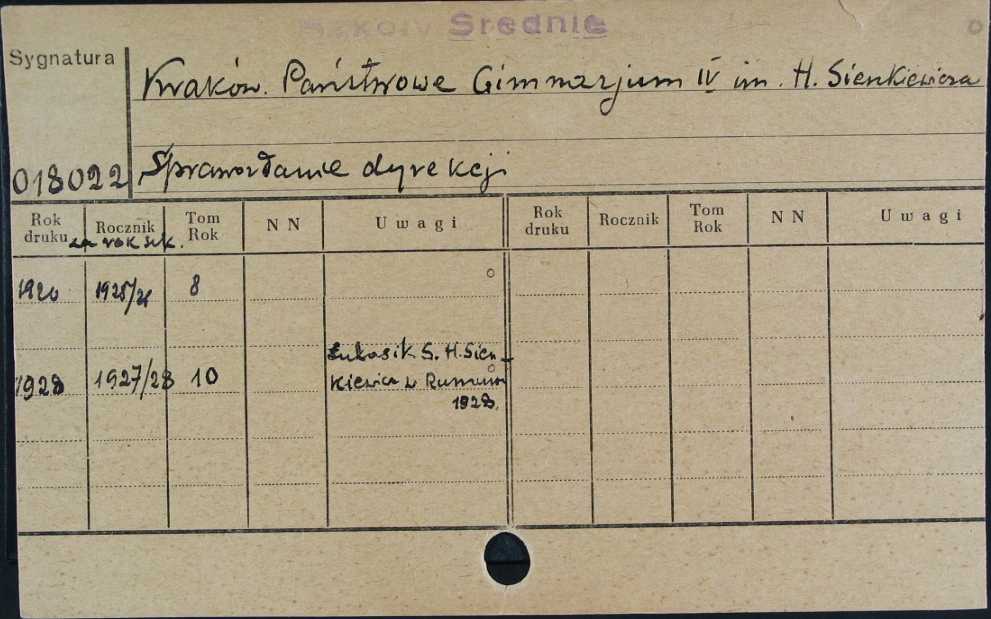 Szkoły Średnie
Sygnatura
Kraków. Państwowe Gimnazjum IV im. H. Sienkiewicza
018022
Sprawozdanie dyrekcji
Rok druku Rocznik za rok szk. Tom Rok N N Uwagi Rok druku Rocznik Tom Rok N N Uwagi
1925/26 8
Łukasik S. H. Sien-
1928 1927/28 10 kiewicz w Rumunii
1928.